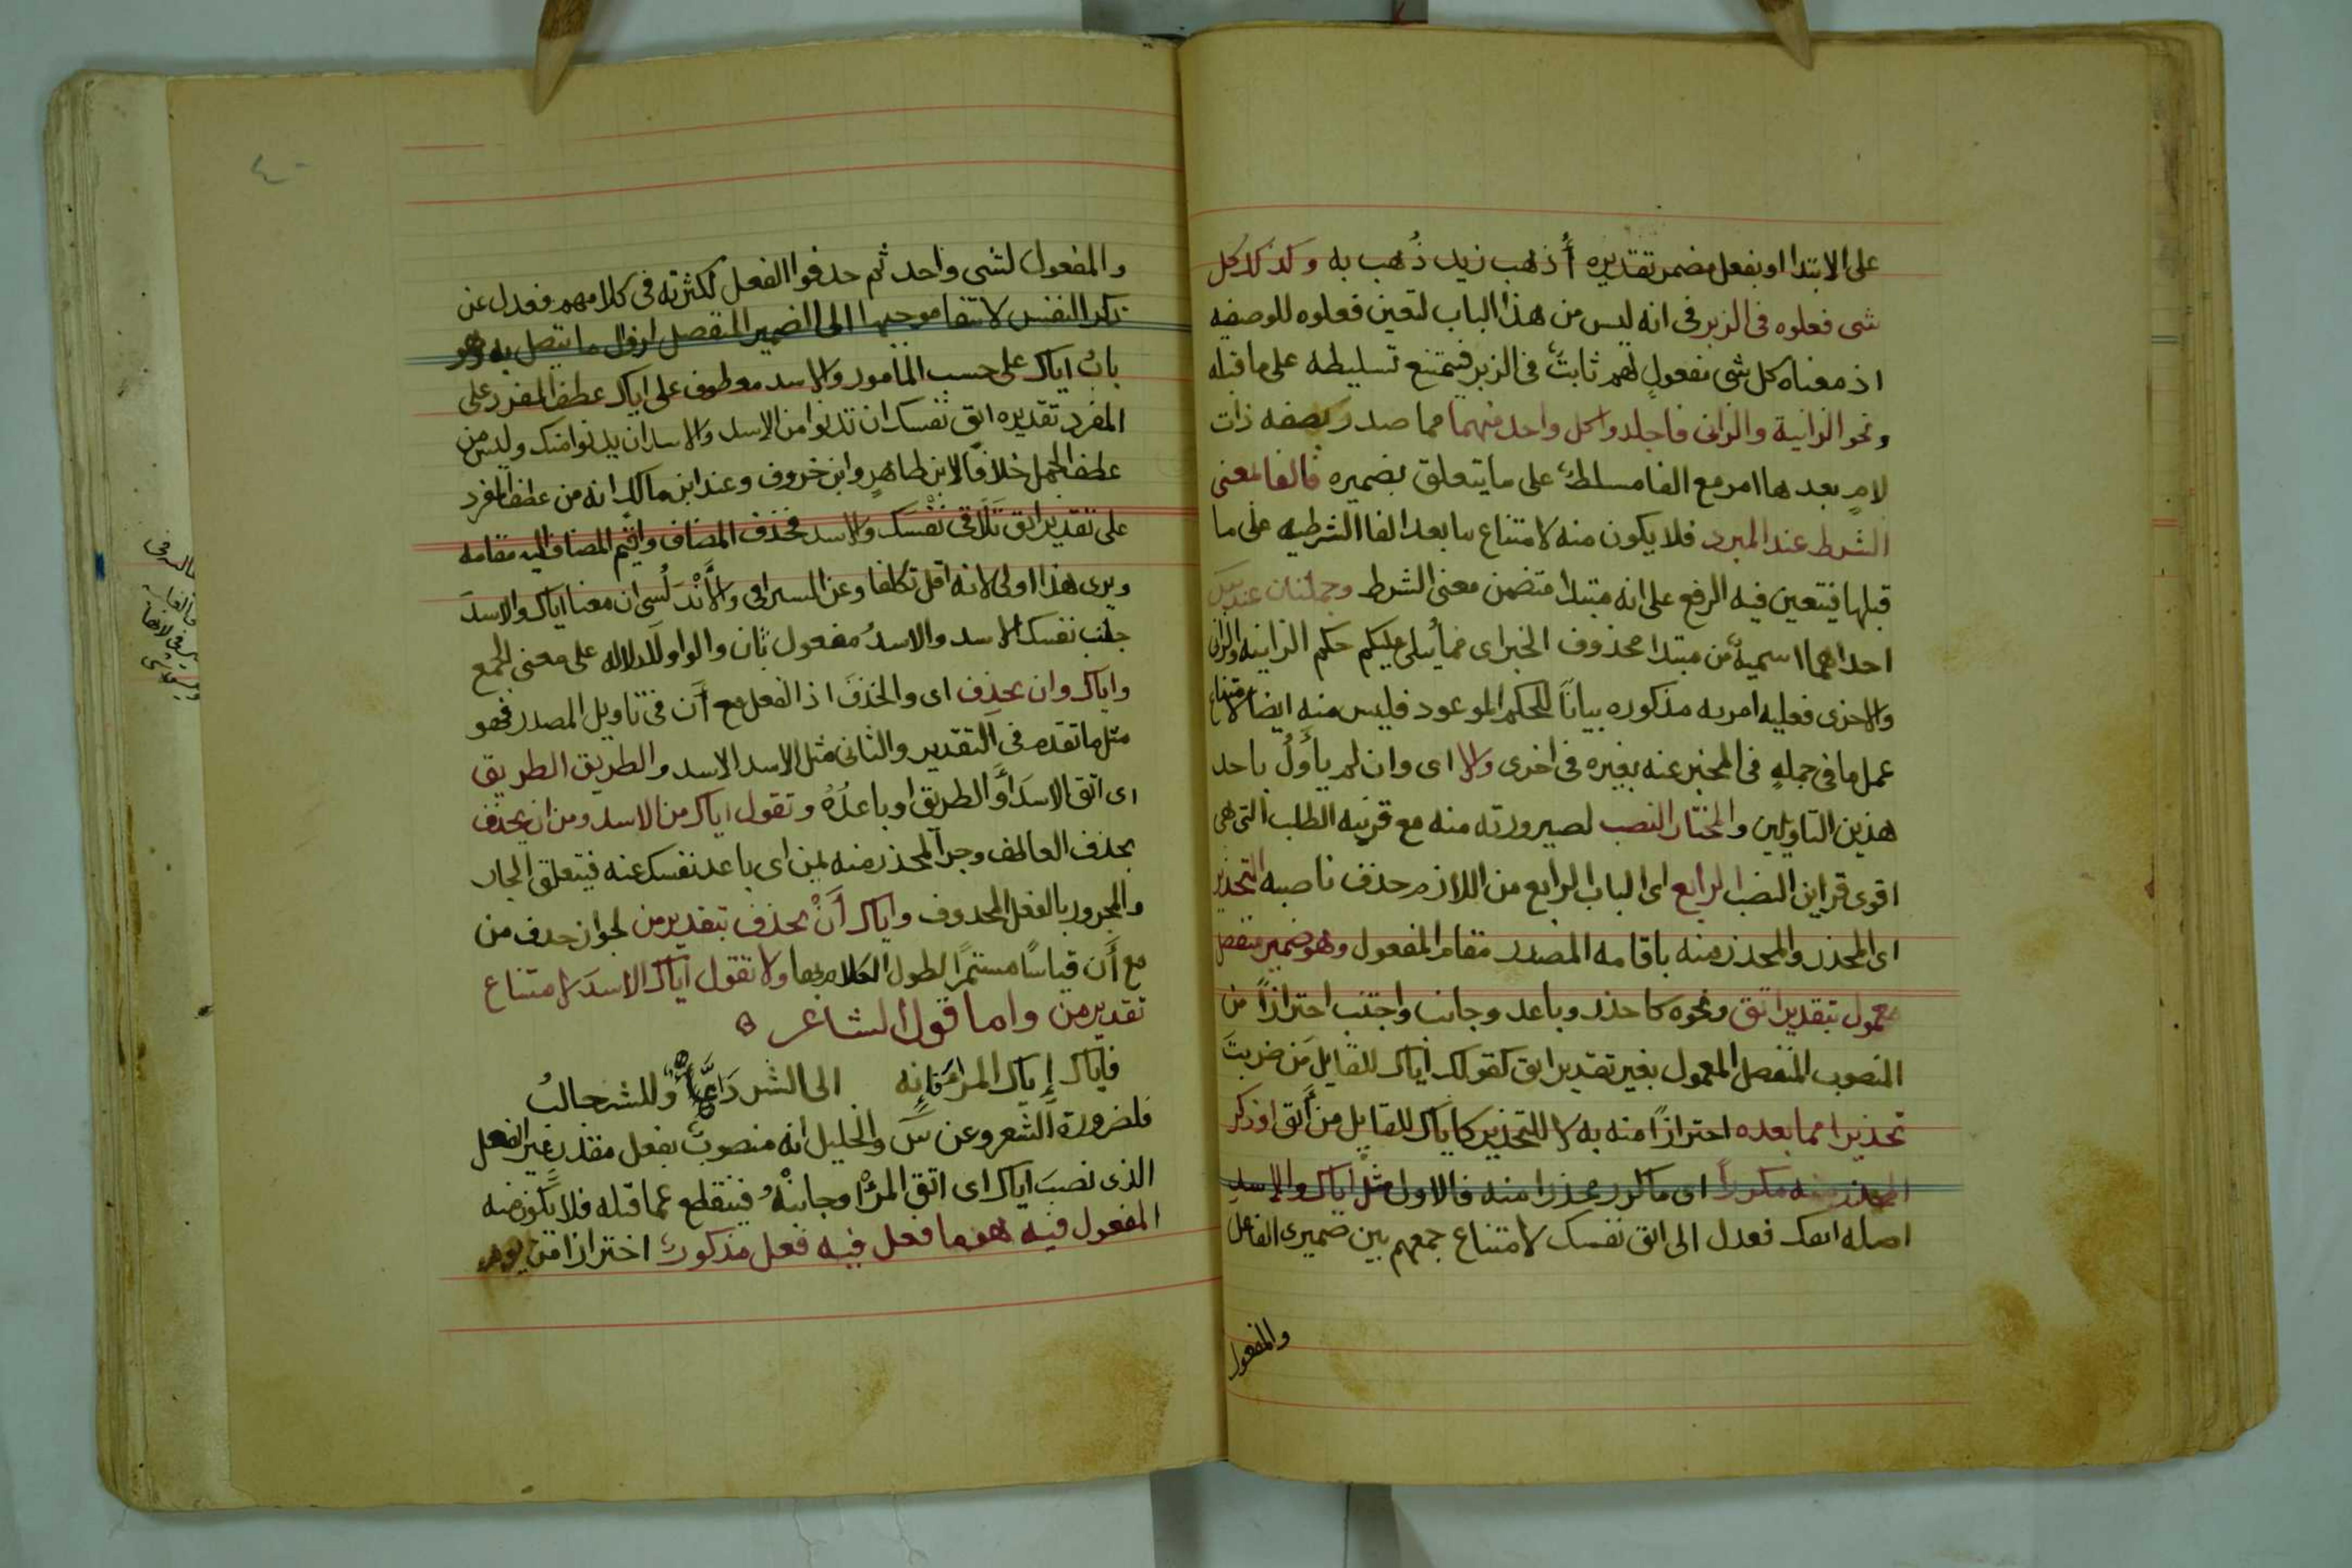 على الابتدا او بفعل مضمر تقديره أُذهب زيد ذُهب به وكذلك كل
شى فعلوه فى الزبر فى انه ليس من هذا الباب لتعين فعلوه للوصفيه
اذ معناه كل شى مفعولٍ لهم ثابتٌ فى الزبر فيمتنع تسليطه على ما قبله
ونحو الزانية والزانى فاجلدوا كل واحد منهما مما صدر بصفه ذات
لامٍ بعدها امر مع الفا مسلطٌ على ما يتعلق بضميره فالفا لمعنى
الشرط عند المبرد فلا يكون منه لامتناع ما بعد الفا الشرطيه على ما
قبلها فيتعين فيه الرفع على انه مبتدا متضمن معنى الشرط وجملتان عند س
احداهما اسميةٌ من مبتدا محذوف الخبر اى مما يُتلى عليكم حكم الزانيه والزانى
والاخرى فعليه امريه مذكوره بيانًا للحكم الموعود فليس منه ايضا لامتناع
عمل ما فى جملةٍ فى المخبر عنه بغيره فى اخرى والا اى وان لم يأوَّلْ باحد
هذين التاويلين والمختار النصب لصيرورته منه مع قرينه الطلب التى هى
اقوى قراين النصب الرابع اى الباب الرابع من اللازم حذف ناصبه التحذير
اى المحذر والمحذر منه باقامه المصدر مقام المفعول وهو ضمير منفصل
معمول بتقدير اتق ونحوه كاحذر وباعد وجانب واجتنب احترازًا من
المنصوب المنفصل المعمول بغير تقدير اتق كقولك اياك للقايل مَن ضربتَ
تحذيرا مما بعده احترازًا منه به لا للتحذير كاياك للقايل من أَتق او ذكر
المحذر منه مكررًا اى ما كرر محذرا منه فالاول مثل اياك والاسد
اصله اتقك فعدل الى اتق نفسك لامتناع جمعهم بين ضميرى الفاعل
والمفعول
والمفعول لشى واحد ثم حذفوا الفعل لكثرته فى كلامهم فعدل عن
ذكر النفس لانتفا موجبها الى الضمير المنفصل لزوال ما يتصل به وهو
باب اياك على حسب المامور والاسد معطوف على اياك عطف المفرد على
المفرد تقديره اتق نفسك ان تدنوا من الاسد والاسد ان يدنوا منك وليس من
عطف الجمل خلافًا لابن طاهرٍ وابن خروف وعند ابن مالك انه من عطف المفرد
على تقدير اتق تَلَاقى نَفْسِك والاسد فحذف المضاف واقيم المضاف اليه مقامه
ويرى هذا اولى لانه اقل تكلفا وعن السيرافى والأَنْدَلُسى ان معنا اياك والاسدَ
جنب نفسك الاسد والاسدُ مفعول ثان والواو للدلاله على معنى الجمع
واياك وان تحذف اى والحذفَ اذ الفعل مع أَن فى تاويل المصدر فهو
مثل ما تقدم فى التقدير والثانى مثل الاسد الاسد والطريق الطريق
اى اتق الاسدَ أو الطريق او باعدْهُ وتقول اياك من الاسد ومن ان تحذف
بحذف العاطف وجر المحذر منه بمن اى باعد نفسك عنه فيتعلق الجار
والمجرور بالفعل المحذوف واياك أَنْ تحذف بتقدير من لجواز حذف من
مع أَن قياسًا مستمرًا لطول الكلام بها ولا تقول اياك الاسدَ لامتناع
تقدير من واما قول الشاعر
فاياك إياك المرا فإنه الى الشر دَعَّاءٌ وللشر جالبُ
فلضرورة الشعر وعن س والخليل انه منصوبٌ بفعل مقدر غير الفعل
الذى نصبَ اياك اى اتق المرا او جانبْهُ فينقطع عما قبله فلا يكون منه
المفعول فيه هو ما فعل فيه فعل مذكورٌ احترازا من يوم